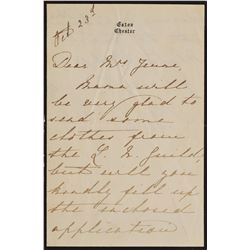 Feb 23d
Eaton
Chester
Dear Mrs Jeune,
Mama will
be very glad to
send some
clothes from
the L. N. Guild,
but will you
kindly fill up
the inclosed
application